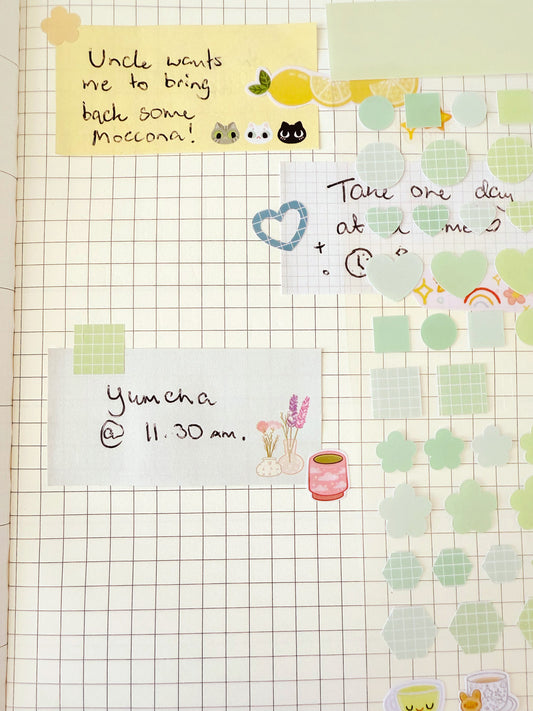 Uncle wants
me to bring
back some
Moccona!
Take one day
at
Yumcha
@ 11.30 am.